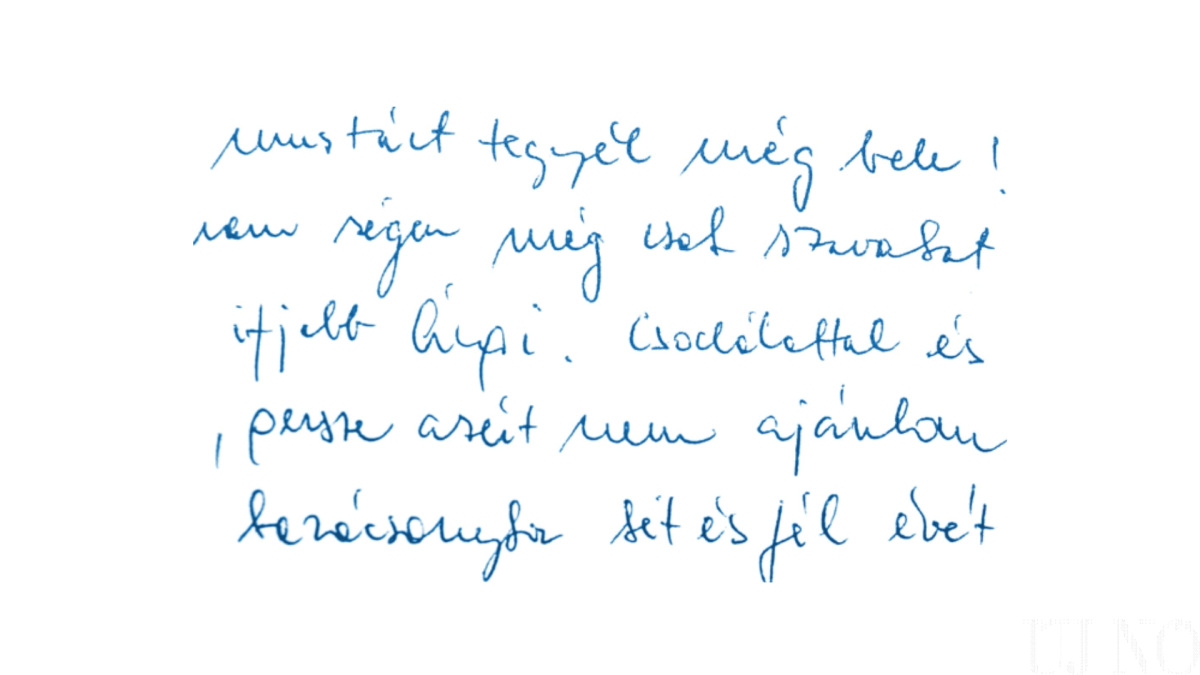 mustárt tegyél még bele!
nem régen még csak szavakat
ifjebb Csodálattal és
, persze azért nem ajánlom
karácsonyfa két és fél évét
ÚJ NŐ